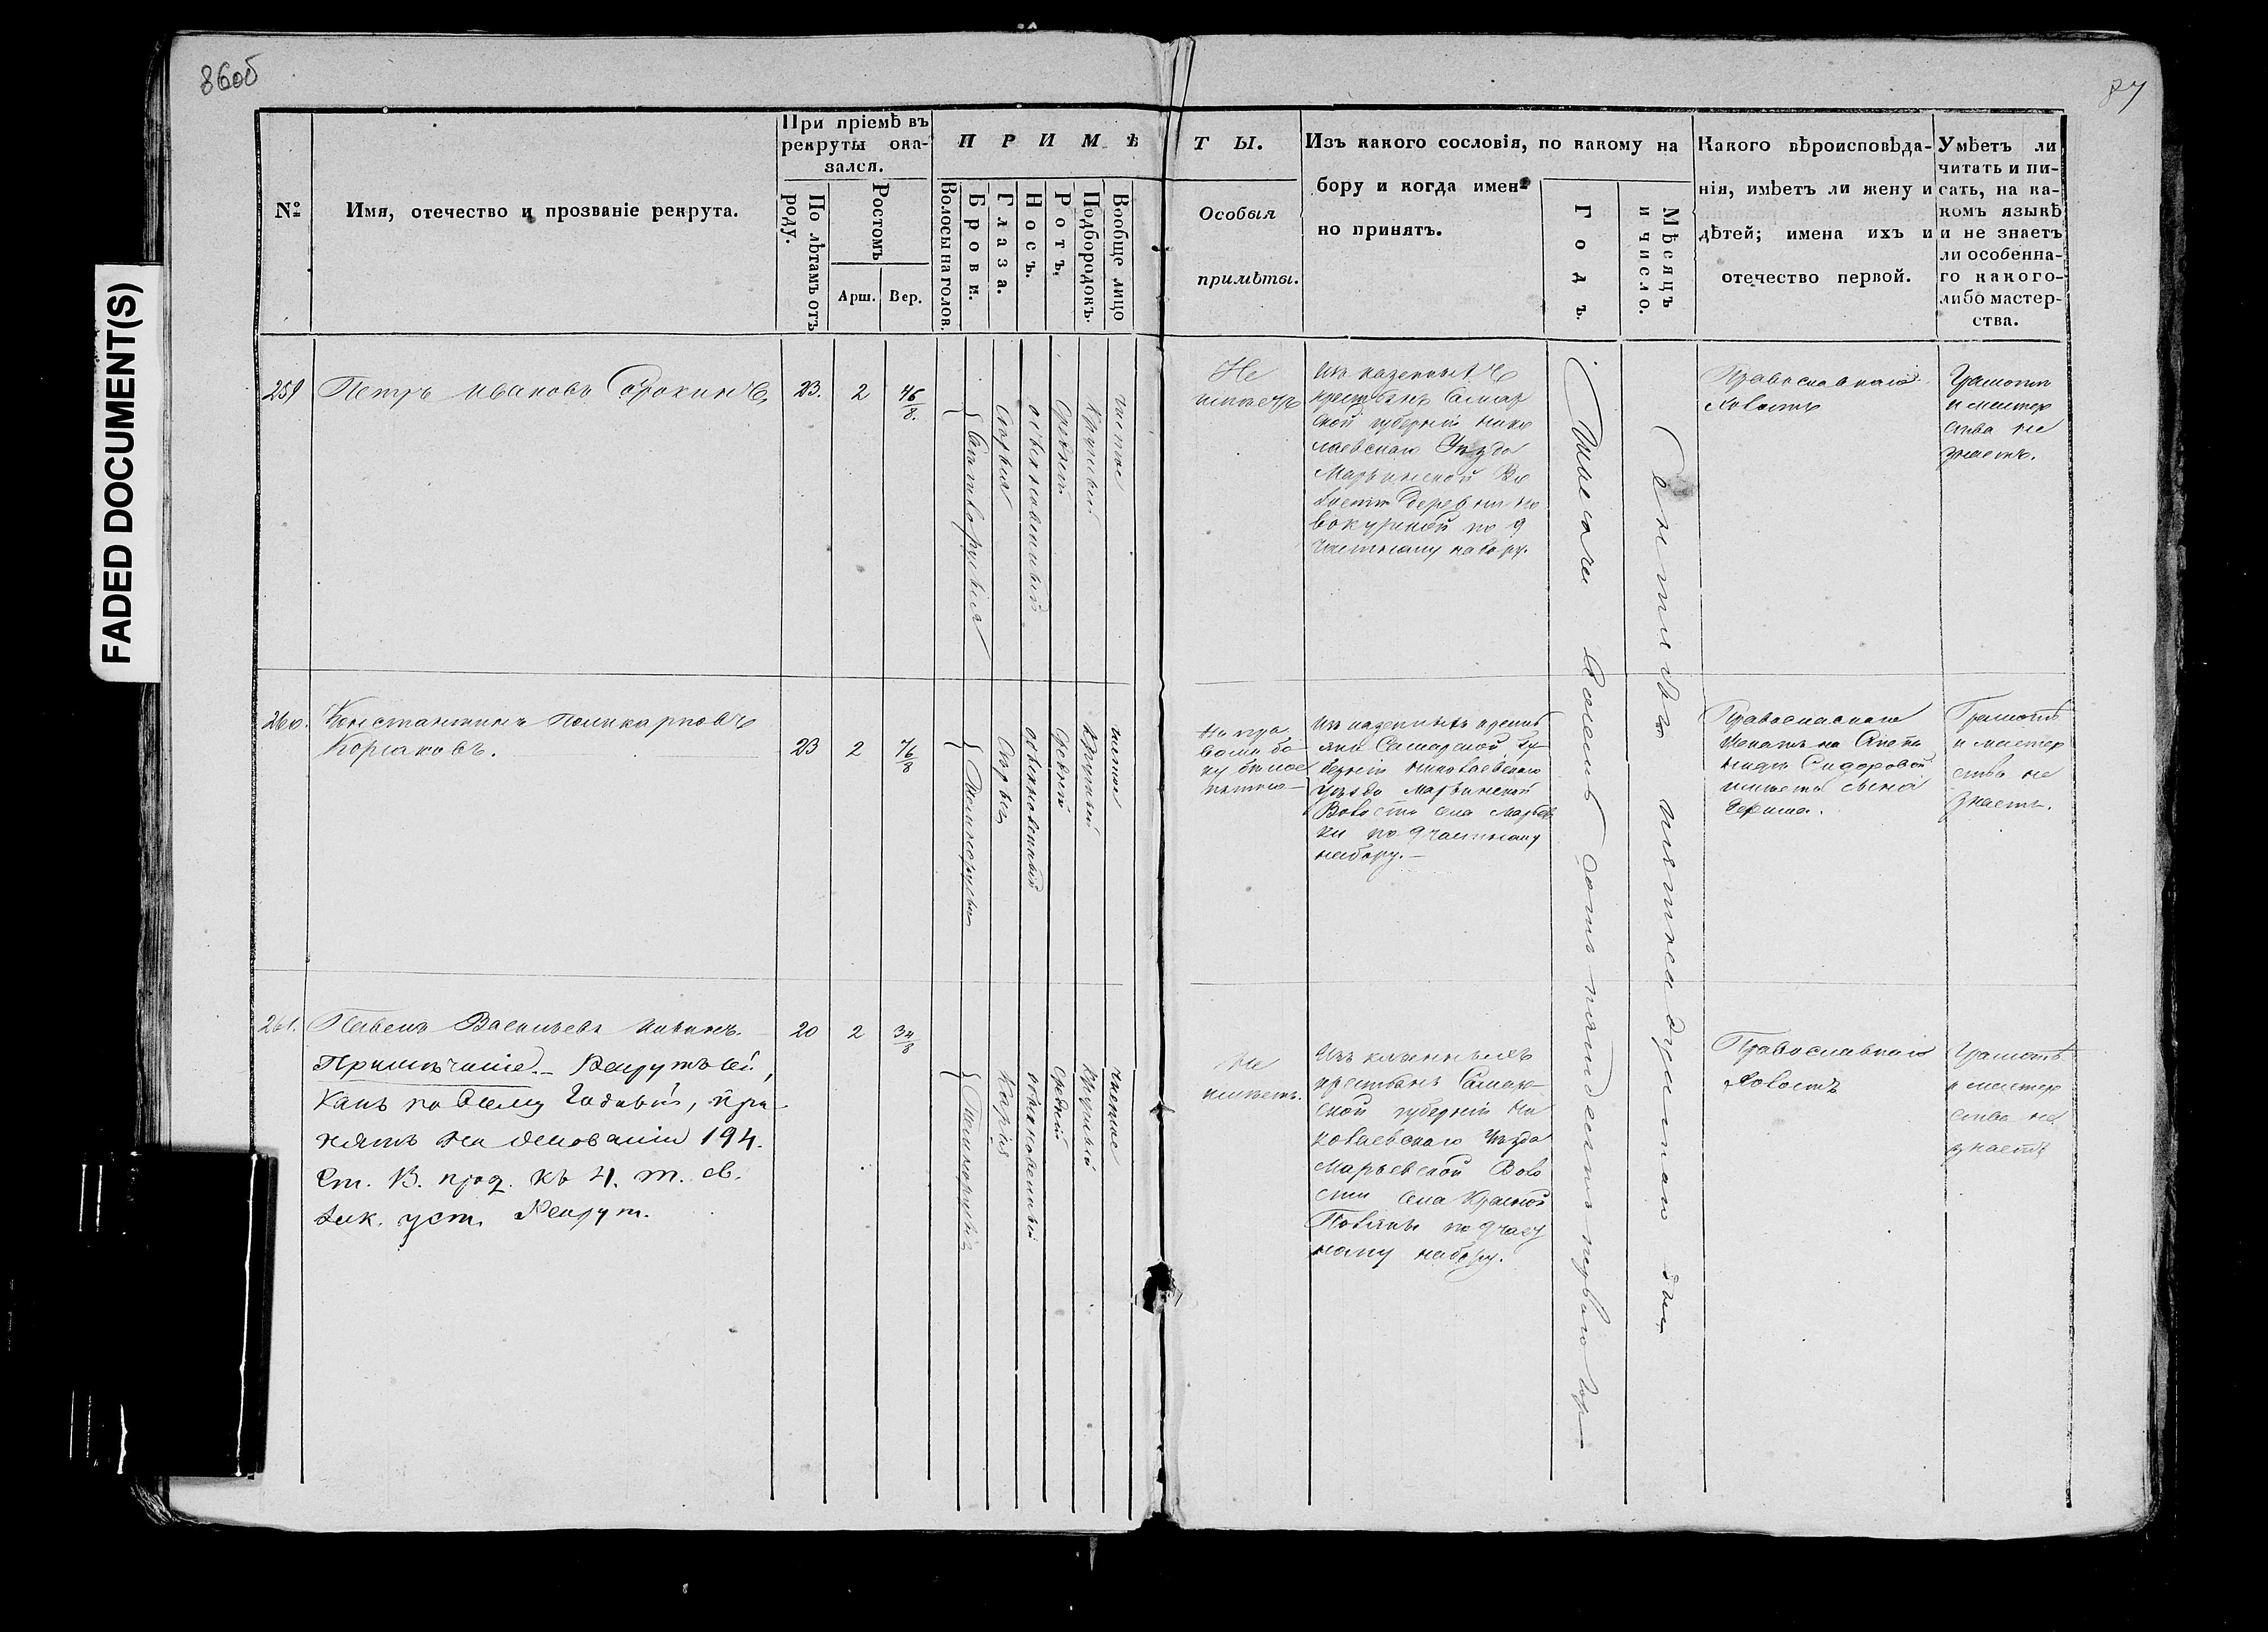 86об
87
FADED DOCUMENT(S)
№
Имя, отечество и прозваніе рекрута.
При пріемѣ въ
рекруты ока-
зался.
По лѣтамъ отъ
роду.
Ростомъ
Арш.
Вер.
ПРИМѢ
Волосы на голов.
Брови.
Глаза.
Носъ.
Ротъ.
Подбородокъ.
Вообще лицо
ТЫ.
Особыя
примѣты.
Изъ какого сословія, по какому на
бору и когда имен-
но принятъ.
Годъ.
Мѣсяцъ
и число.
Какого вѣроисповѣда-
нія, имѣетъ ли жену и
дѣтей; имена ихъ и
отечество первой.
Умѣетъ ли
читать и пи-
сать, на ка-
комъ языкѣ
и не знаетъ
ли особенна-
го какого-
либо мастер-
ства.
259
Петръ Ивановъ Сорокинъ
23.
2
4 6/8.
Свѣтлорусыя
Сѣрыя
обыкновенный
Средній
Круглый
чистое
Не
имѣетъ
Изъ казенныхъ
крестьянъ Самар
ской губерніи Нико
лаевскаго Уѣзда
Марьинской Во
лости деревни
по 9
частному набору.
Православнаго
Холостъ
Грамоты
и мастер
ства не
знаетъ.
260.
Константинъ Поликарповъ
Коршковъ.
23
2
7 6/8
Темнорусыя
Сѣрыя
обыкновенный
Средній
Круглый
чистое
На пра
вомъ бо-
ку бѣлое
пятно
Изъ казенныхъ крестьянъ
Самарской Гу
берніи Николаевскаго
Уѣзда Марьинской
Волости села Марьев
ки по 9 частному
набору.
Православнаго
Женатъ на
Сидоровой
имѣетъ сына
Ефима.
Грамоты
и мастер
ства не
знаетъ.
261.
Павелъ Васильевъ
Примѣчаніе. Рекрутъ сей,
какъ по всему годовый, при
нятъ на основаніи 194.
Ст. В. прод. къ 4. т. св.
зак. уст. Рекрут.
20
2
3 4/8
Темнорусыя
Каріе
обыкновенный
Средній
Круглый
чистое
Не
имѣетъ.
Изъ казенныхъ
крестьянъ Самар
ской губерніи Ни
колаевскаго Уѣзда
Марьевской Воло
сти села Красной
Поляны по 9 част
ному набору.
Православнаго
Холостъ
Грамоты
и мастер
ства не
знаетъ
Тысяча восемь сотъ пятдесятъ перваго года
Сентября пятнадцатаго дня